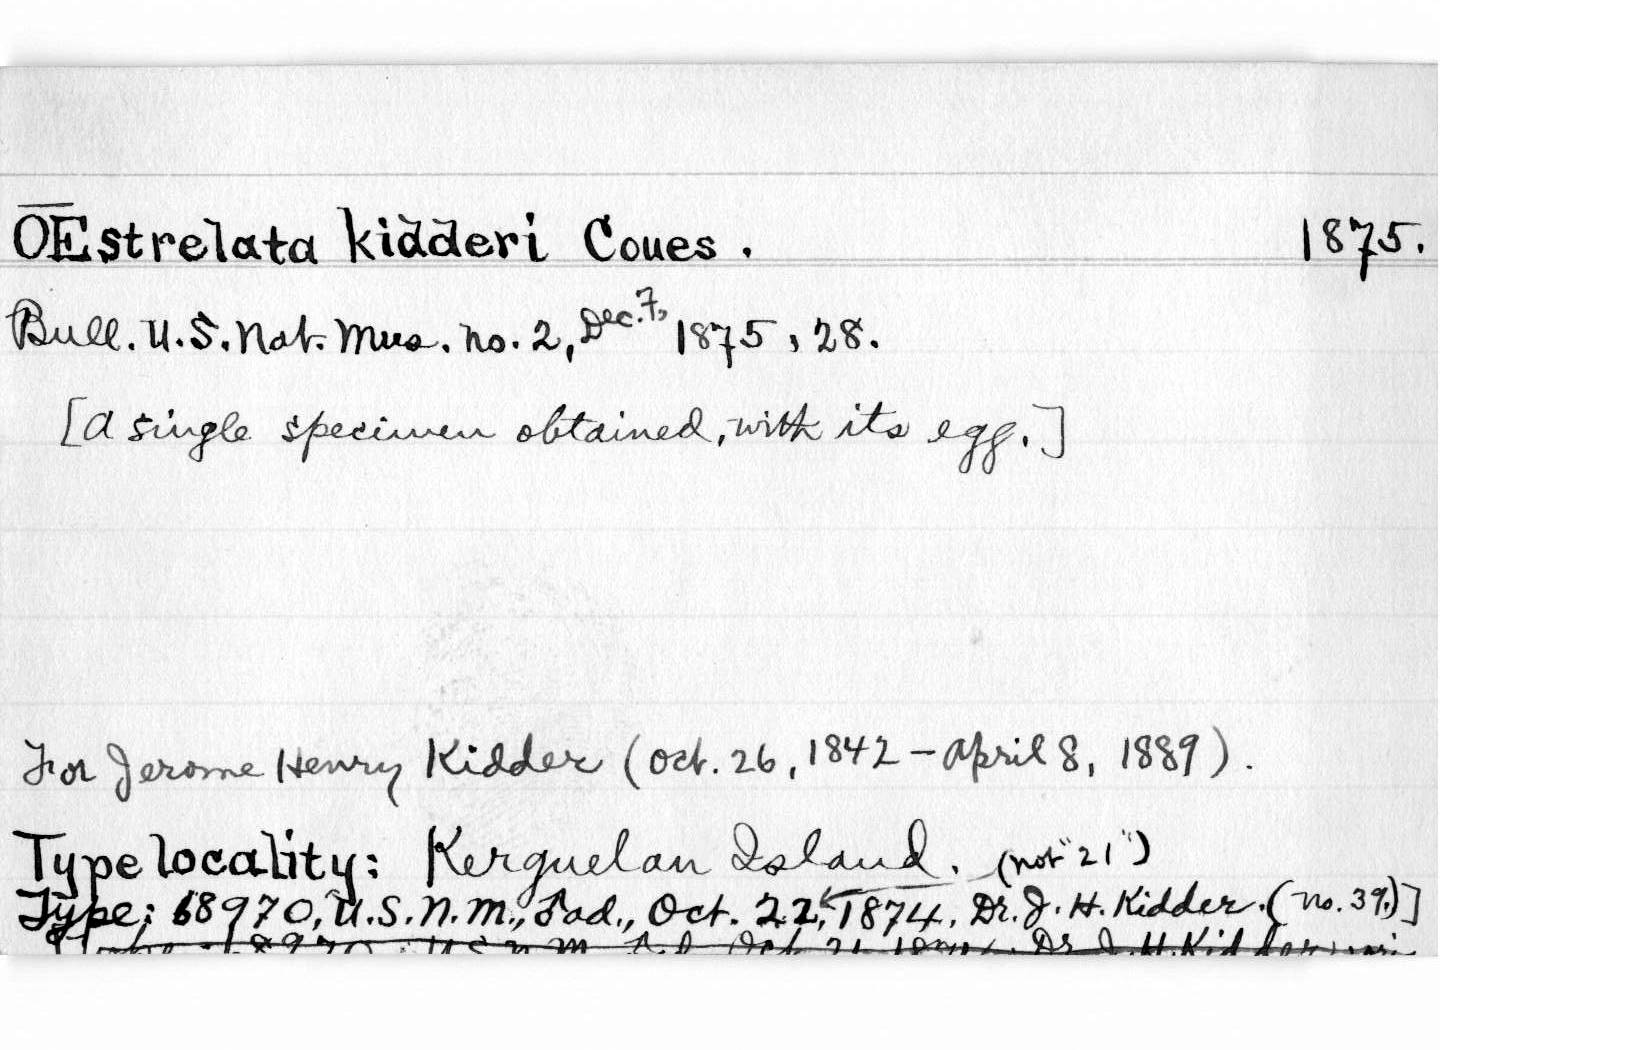 OEstrelata kidderi Coues. 1875.
Bull. U.S. Nat. Mus. no. 2, Dec. 7, 1875, 28.
[A single specimen obtained, with its egg.]
For Jerome Henry Kidder (Oct. 26, 1842 – April 8, 1889).
Type locality: Kerguelan Island. (not "21")
Type: 68970, U.S.N.M., Fad., Oct. 22, 1874, Dr. J. H. Kidder. (no. 39.)]